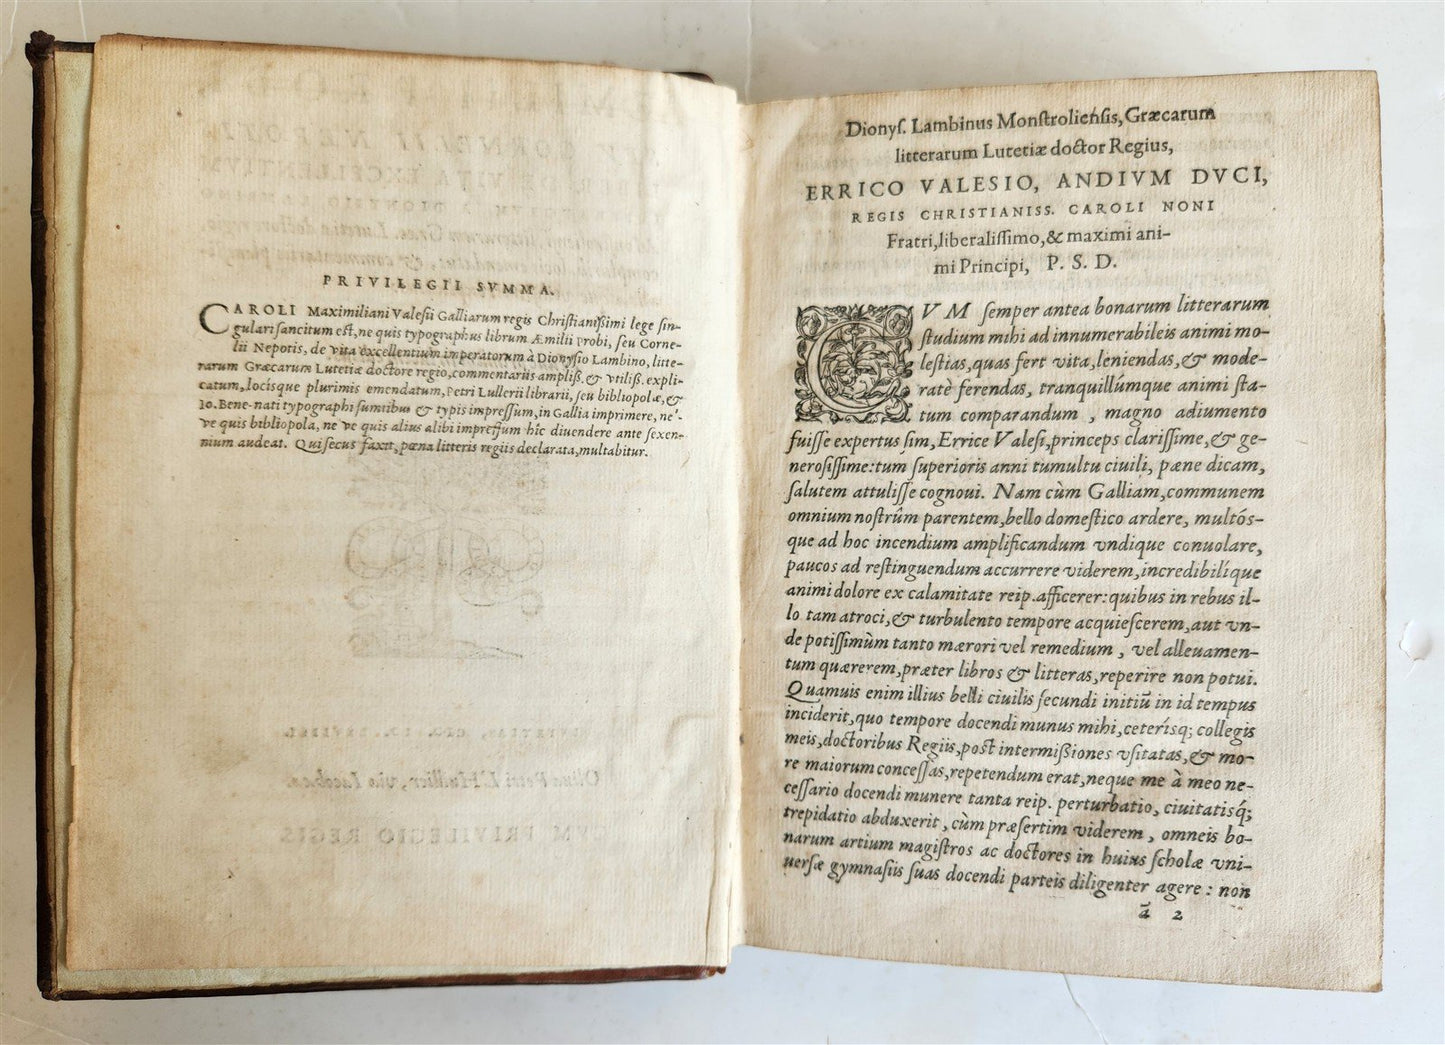 PRIVILEGII SVMMA.
CAROLI Maximiliani Valesii Galliarum regis Christianißimi lege sin-
gulari sancitum est, ne quis typographus librum Æmilii Probi, seu Corne-
lii Nepotis, de vita excellentium imperatorum à Dionysio Lambino, litte-
rarum Græcarum Lutetiæ doctore regio, commentariis ampliß. & vtiliß. expli-
catum, locisque plurimis emendatum, Petri Lullerii librarii, seu bibliopolæ, &
Io. Bene-nati typographi sumtibus & typis impressum, in Gallia imprimere, ne'-
ve quis bibliopola, ne ve quis alius alibi impressum hîc diuendere ante sexen-
nium audeat. Qui secus faxit, pœna litteris regiis declarata, multabitur.
Dionys. Lambinus Monstroliensis, Græcarum
litterarum Lutetiæ doctor Regius,
ERRICO VALESIO, ANDIVM DVCI,
REGIS CHRISTIANISS. CAROLI NONI
Fratri, liberalissimo, & maximi ani-
mi Principi, P. S. D.
CVM semper antea bonarum litterarum
studium mihi ad innumerabileis animi mo-
lestias, quas fert vita, leniendas, & mode-
ratè ferendas, tranquillumque animi sta-
tum comparandum , magno adiumento
fuisse expertus sim, Errice Valesi, princeps clarissime, & ge-
nerosissime: tum superioris anni tumultu ciuili, pæne dicam,
salutem attulisse cognoui. Nam cùm Galliam, communem
omnium nostrûm parentem, bello domestico ardere, multós-
que ad hoc incendium amplificandum vndique conuolare,
paucos ad restinguendum accurrere viderem, incredibilíque
animi dolore ex calamitate reip. afficerer: quibus in rebus il-
lo tam atroci, & turbulento tempore acquiescerem, aut vn-
de potissimùm tanto mærori vel remedium , vel alleuamen-
tum quærerem, præter libros & litteras, reperire non potui.
Quamuis enim illius belli ciuilis secundi initiū in id tempus
inciderit, quo tempore docendi munus mihi, ceterísq; collegis
meis, doctoribus Regiis, post intermißiones vsitatas, & mo-
re maiorum concessas, repetendum erat, neque me à meo ne-
cessario docendi munere tanta reip. perturbatio, ciuitatisq́;
trepidatio abduxerit, cùm præsertim viderem , omneis bo-
narum artium magistros ac doctores in huius scholæ vni-
uersæ gymnasiis suas docendi parteis diligenter agere : non
ā 2